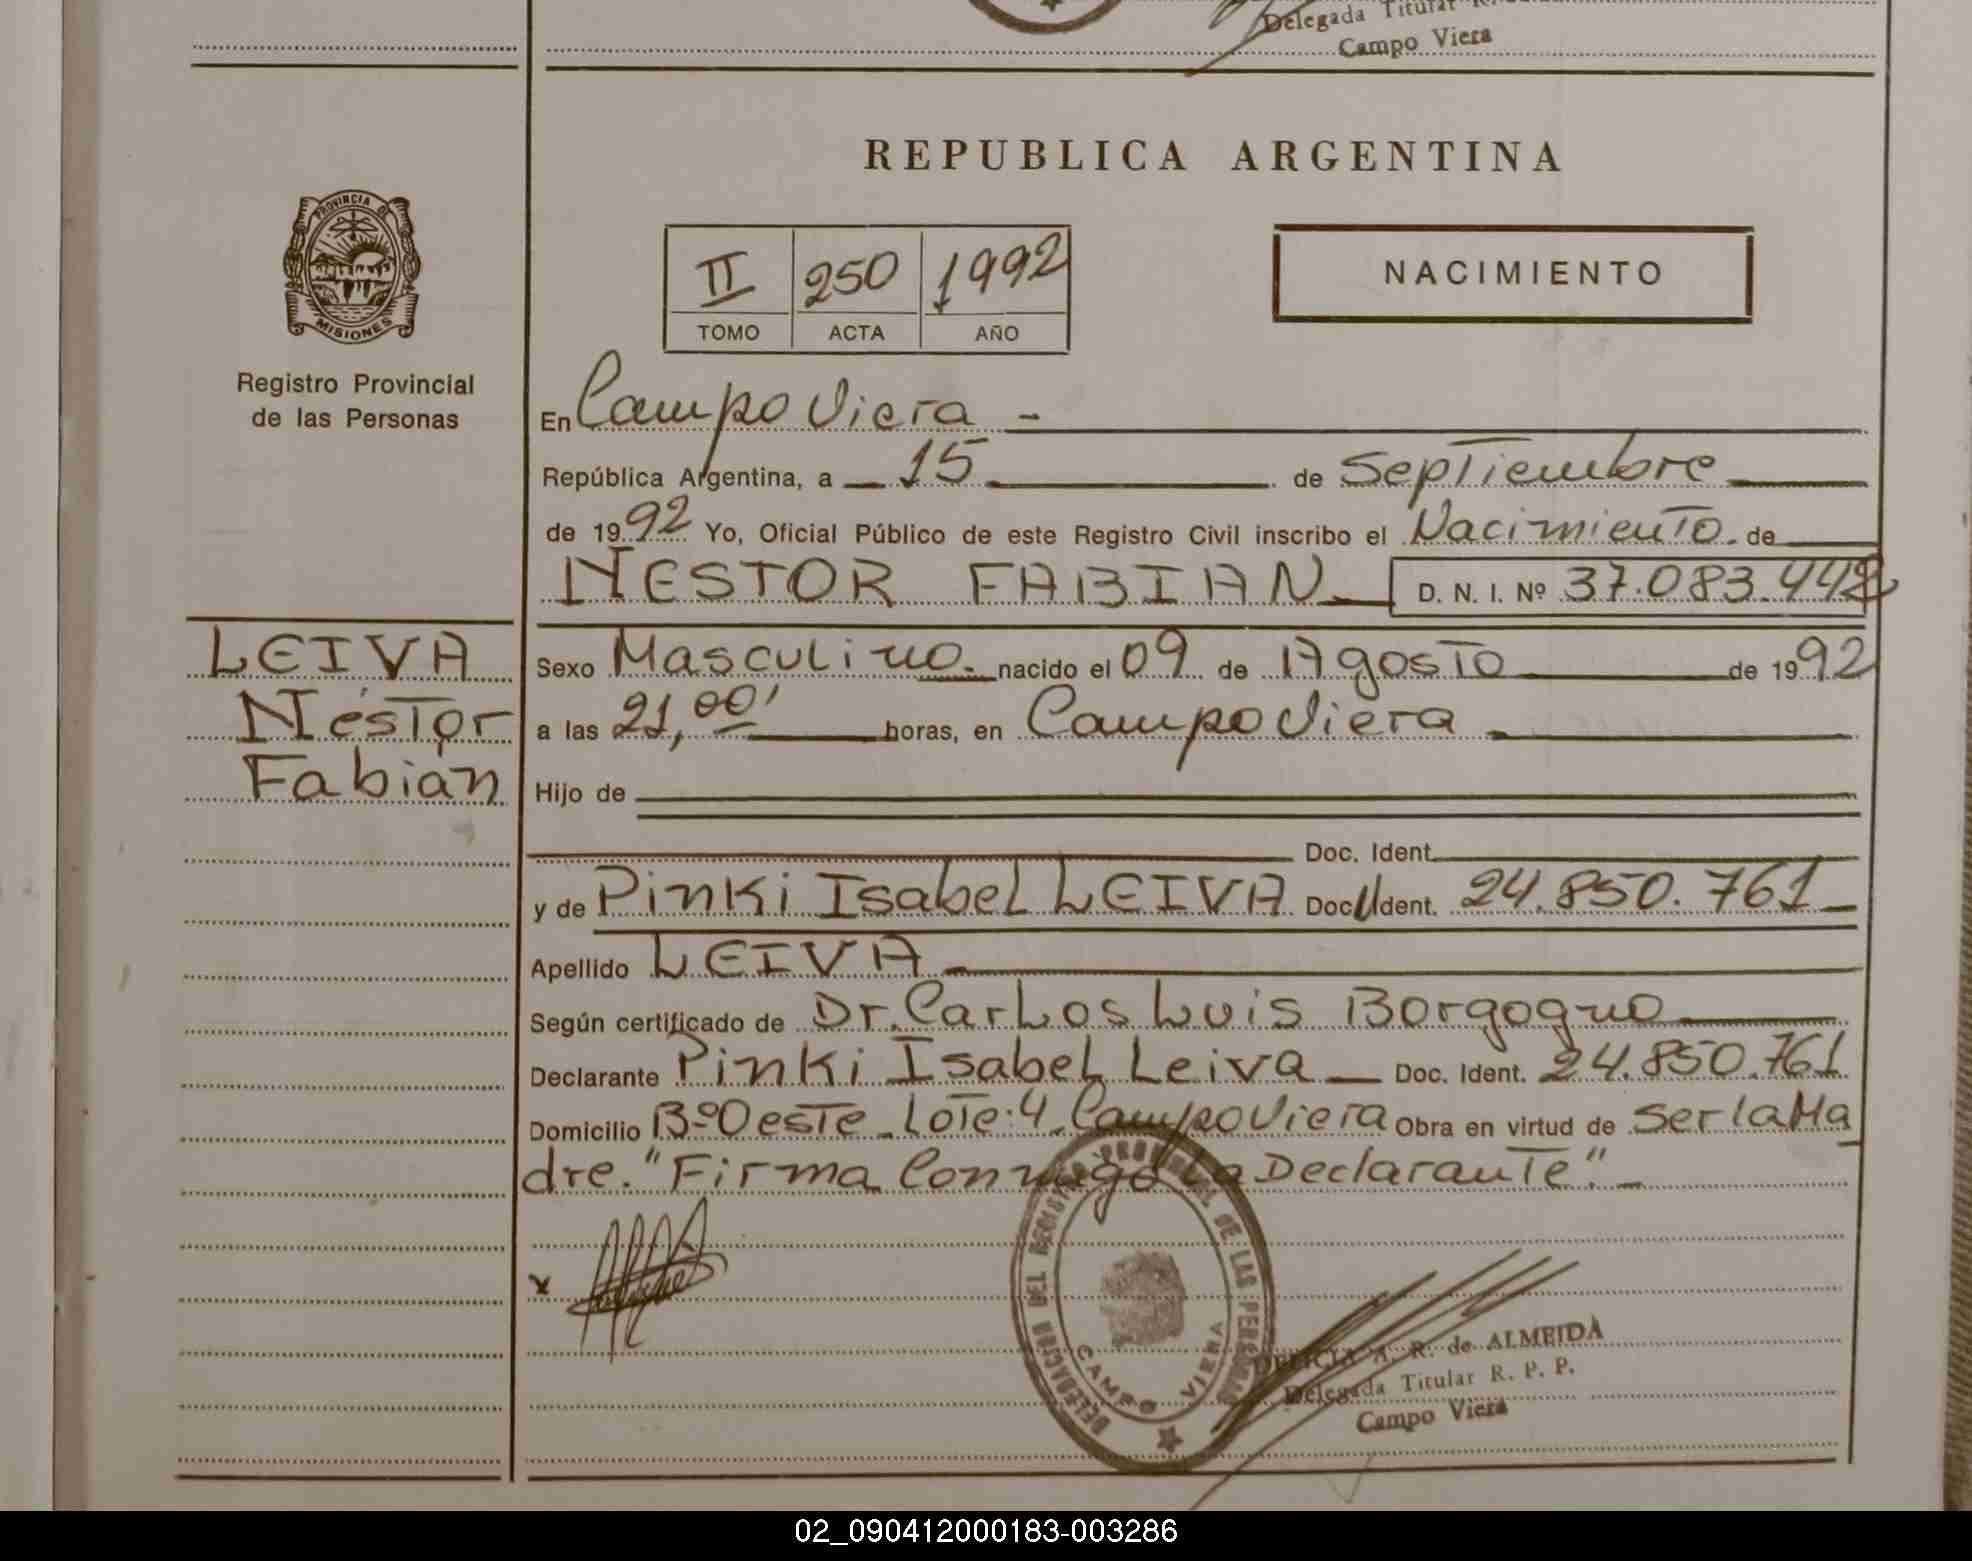 Delegada Titular R.
Campo Viera
REPUBLICA ARGENTINA
PROVINCIA DE
MISIONES
Registro Provincial
de las Personas
II 250 1992
TOMO ACTA AÑO
NACIMIENTO
En Campo Viera -
República Argentina, a 15 de Septiembre
de 1992 Yo, Oficial Público de este Registro Civil inscribo el Nacimiento de
NESTOR FABIAN D. N. I. Nº 37.083.442
LEIVA
Néstor
Fabián
Sexo Masculino. nacido el 09 de Agosto de 1992
a las 21,00' horas, en Campo Viera
Hijo de
Doc. Ident.
y de Pinki Isabel LEIVA Doc. Ident. 24.850.761
Apellido LEIVA
Según certificado de Dr. Carlos Luis Borgogno
Declarante Pinki Isabel Leiva Doc. Ident. 24.850.761
Domicilio Bº Oeste - Lote: 4. Campo Viera Obra en virtud de Ser la Ma
dre. "Firma Conmigo La Declarante". -
x
DELEGACION DEL REGISTRO PROVINCIAL DE LAS PERSONAS
CAMPO VIERA
DELICIA A. R. de ALMEIDA
Delegada Titular R. P. P.
Campo Viera
02_090412000183-003286